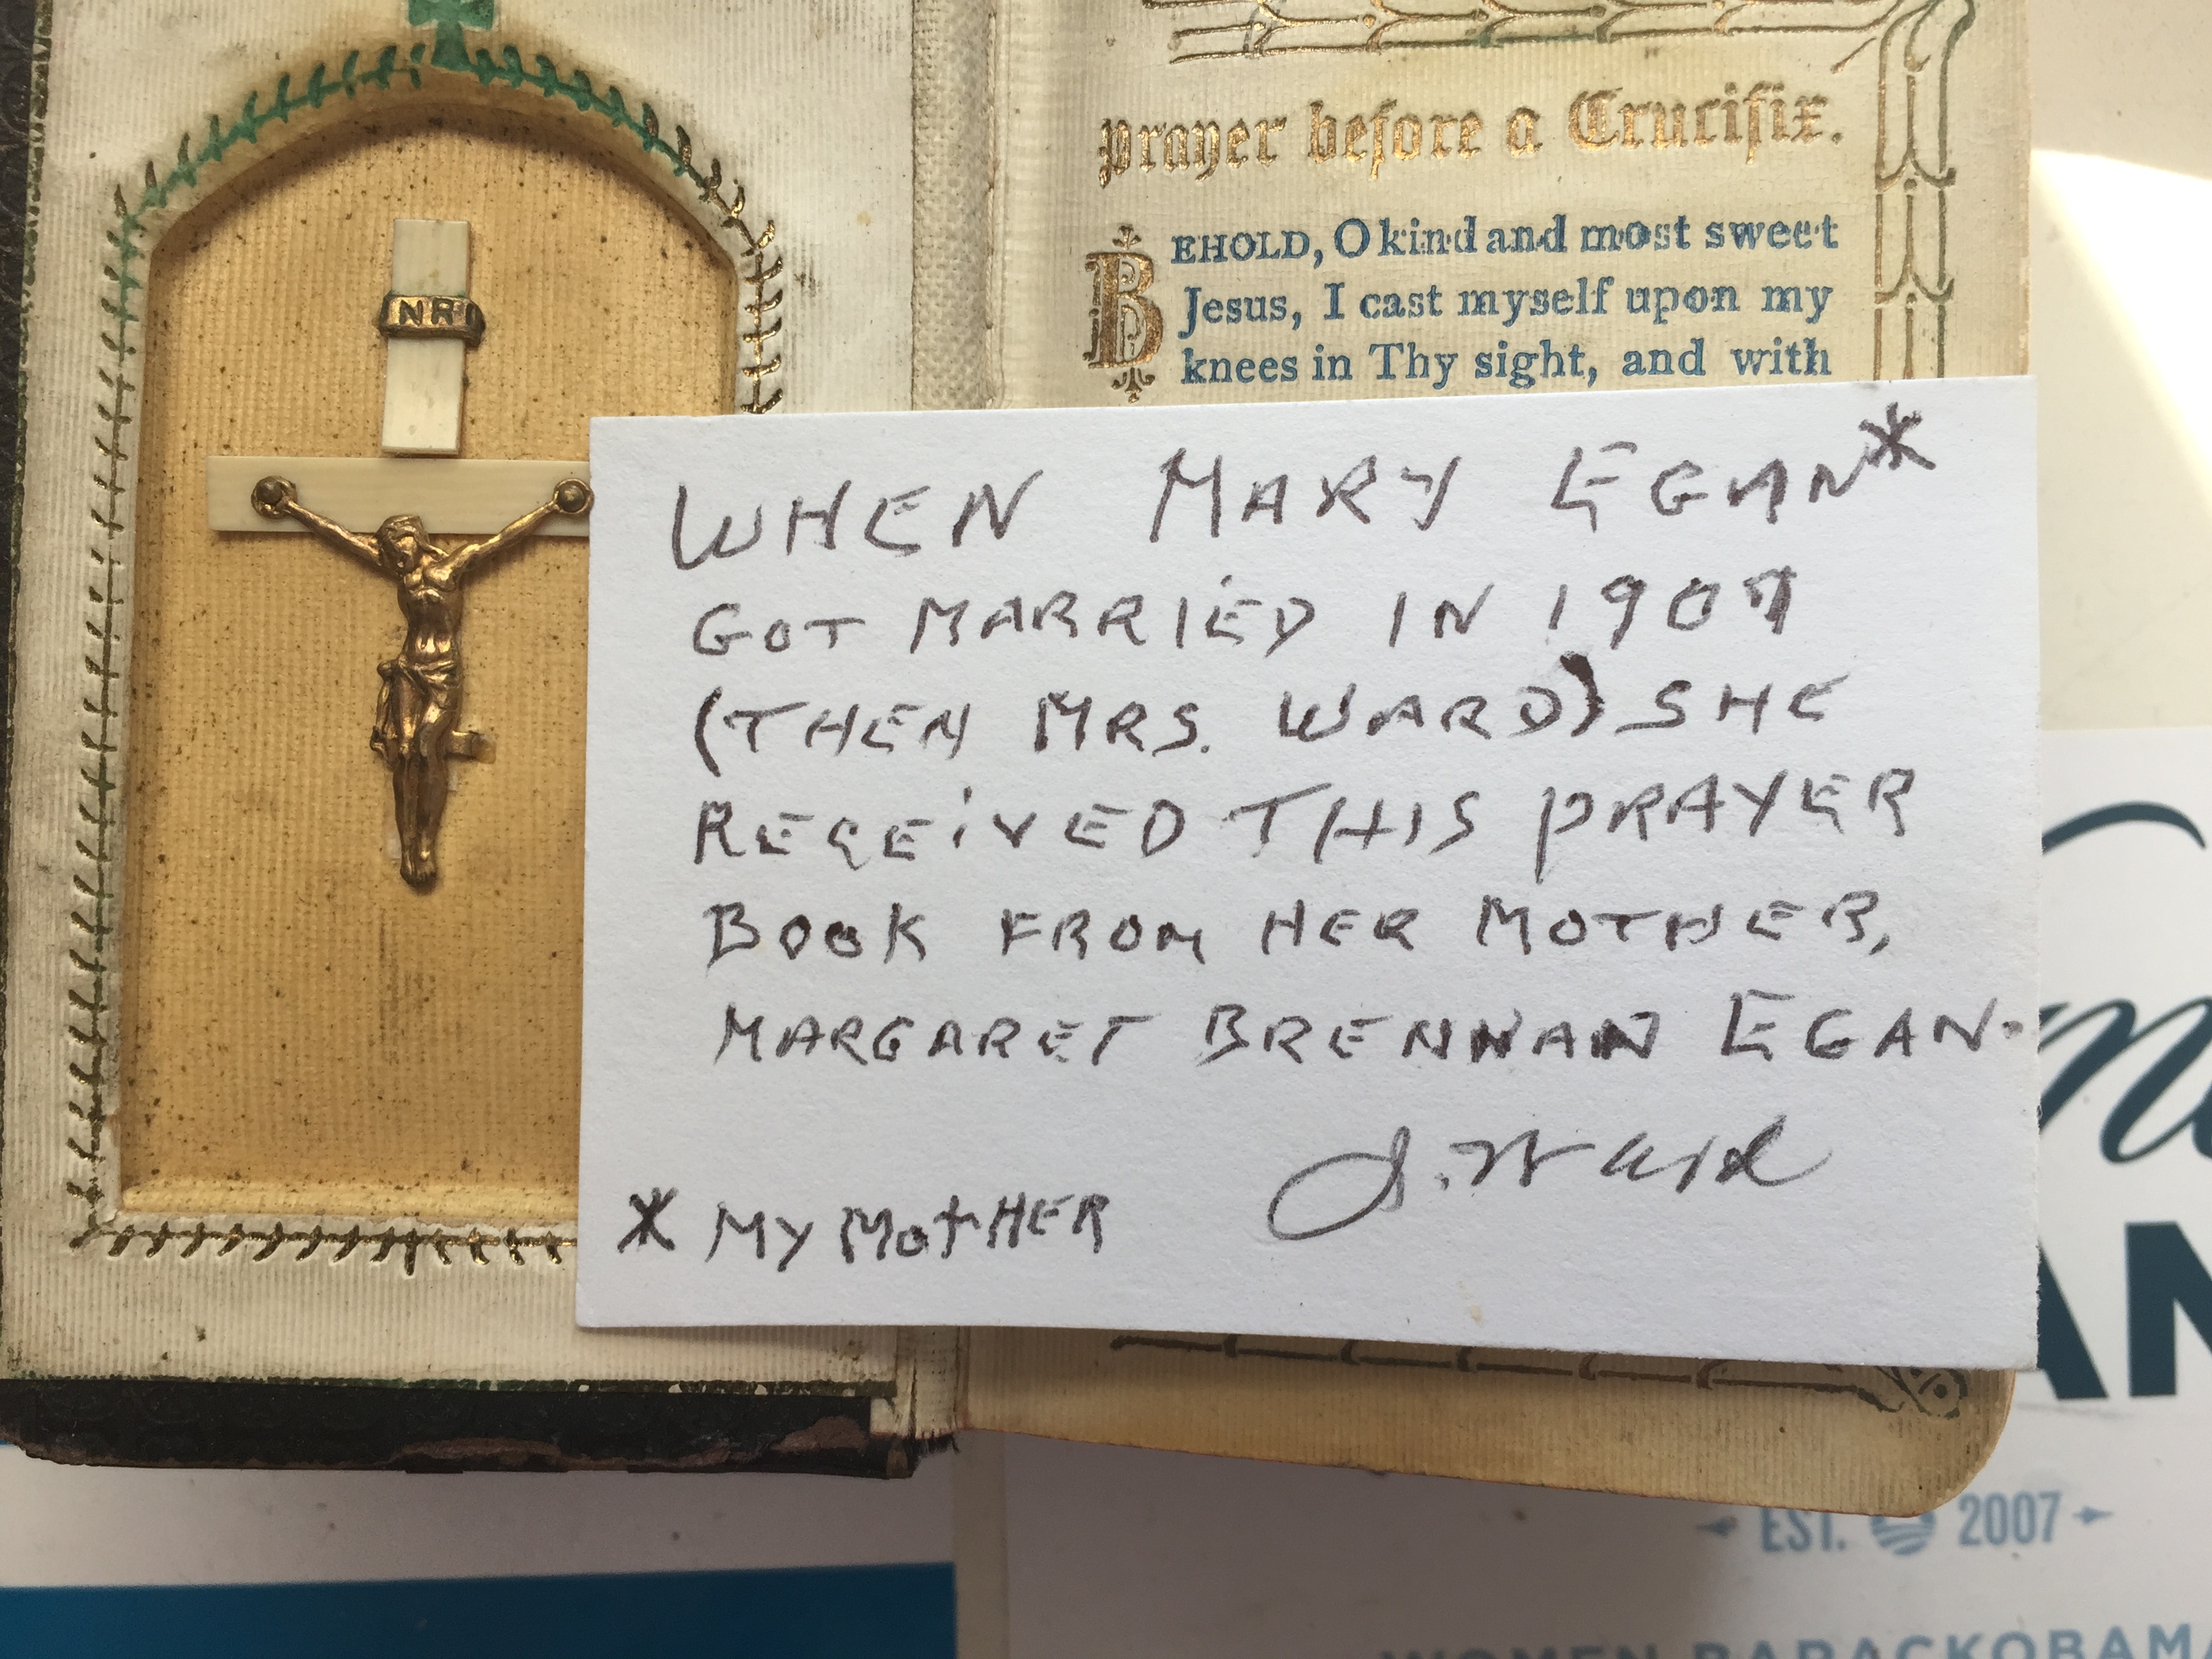 INRI
Prayer before a Crucifix.
BEHOLD, O kind and most sweet
Jesus, I cast myself upon my
knees in Thy sight, and with
WHEN MARY EGAN*
GOT MARRIED IN 1907
(THEN MRS. WARD) SHE
RECEIVED THIS PRAYER
BOOK FROM HER MOTHER,
MARGARET BRENNAN EGAN.
J. Ward
* MY MOTHER
AN
EST. 2007
WOMEN.BARACKOBAMA